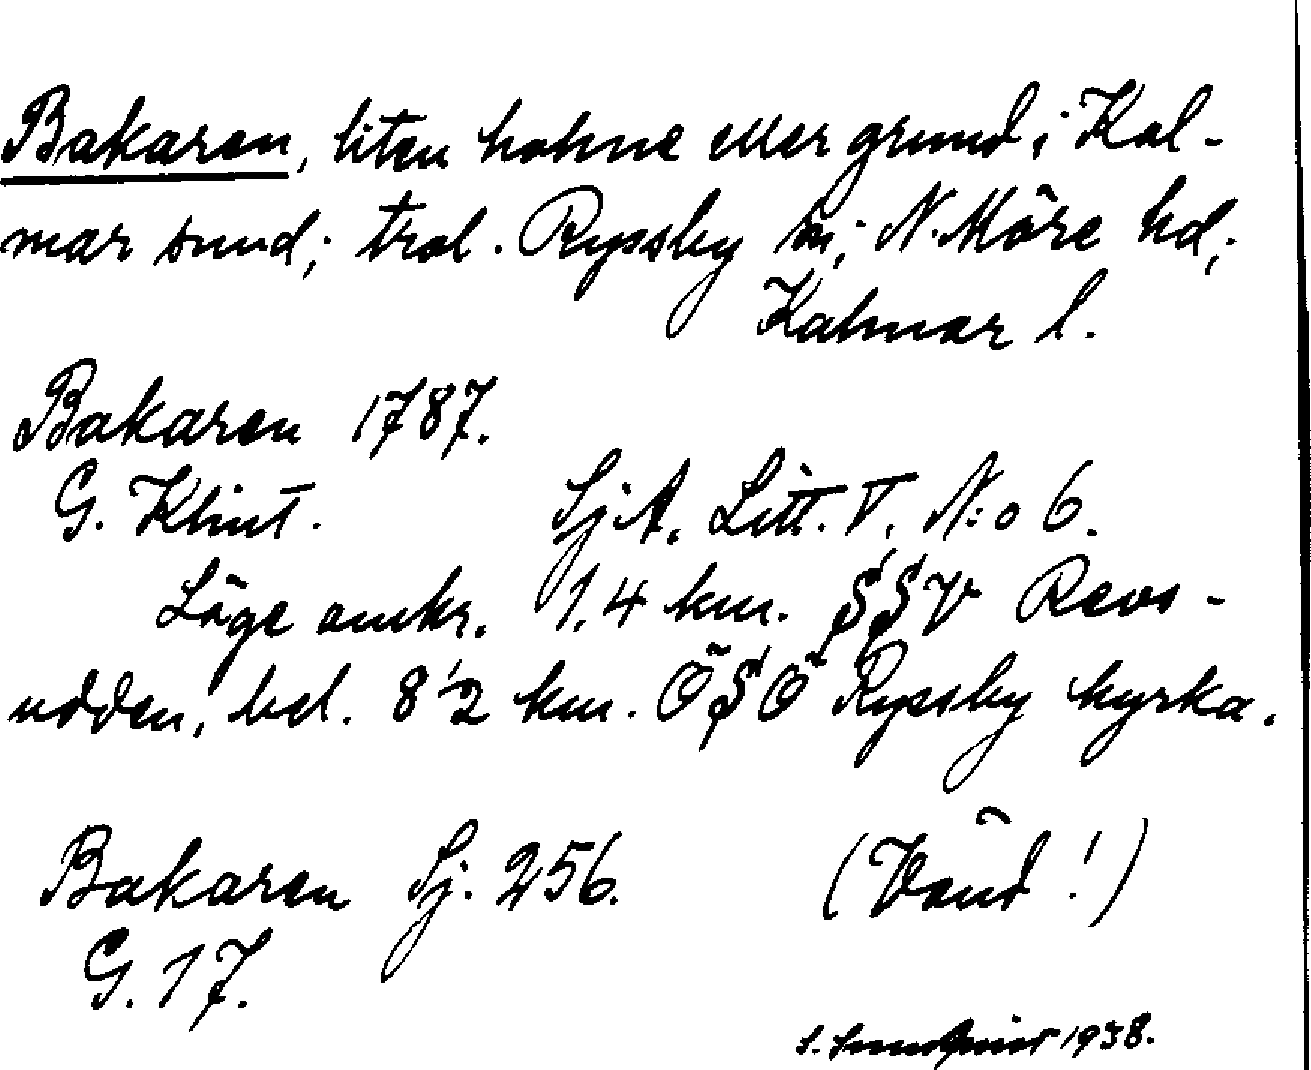 Bakaren, liten holme eller grund i Kal-
mar sund; trol. Ryssby sn; N. Möre hd;
Kalmar l.
Bakaren 1787.
G. Klint. SjA. Litt. V. N:o 6.
Läge omkr. 1,4 km. SSV Revs-
udden, bel. 8 1/2 km. ÖSÖ Ryssby kyrka.
Bakaren Sj. 256. (Vänd!)
G. 17.
S. Sundqvist 1938.